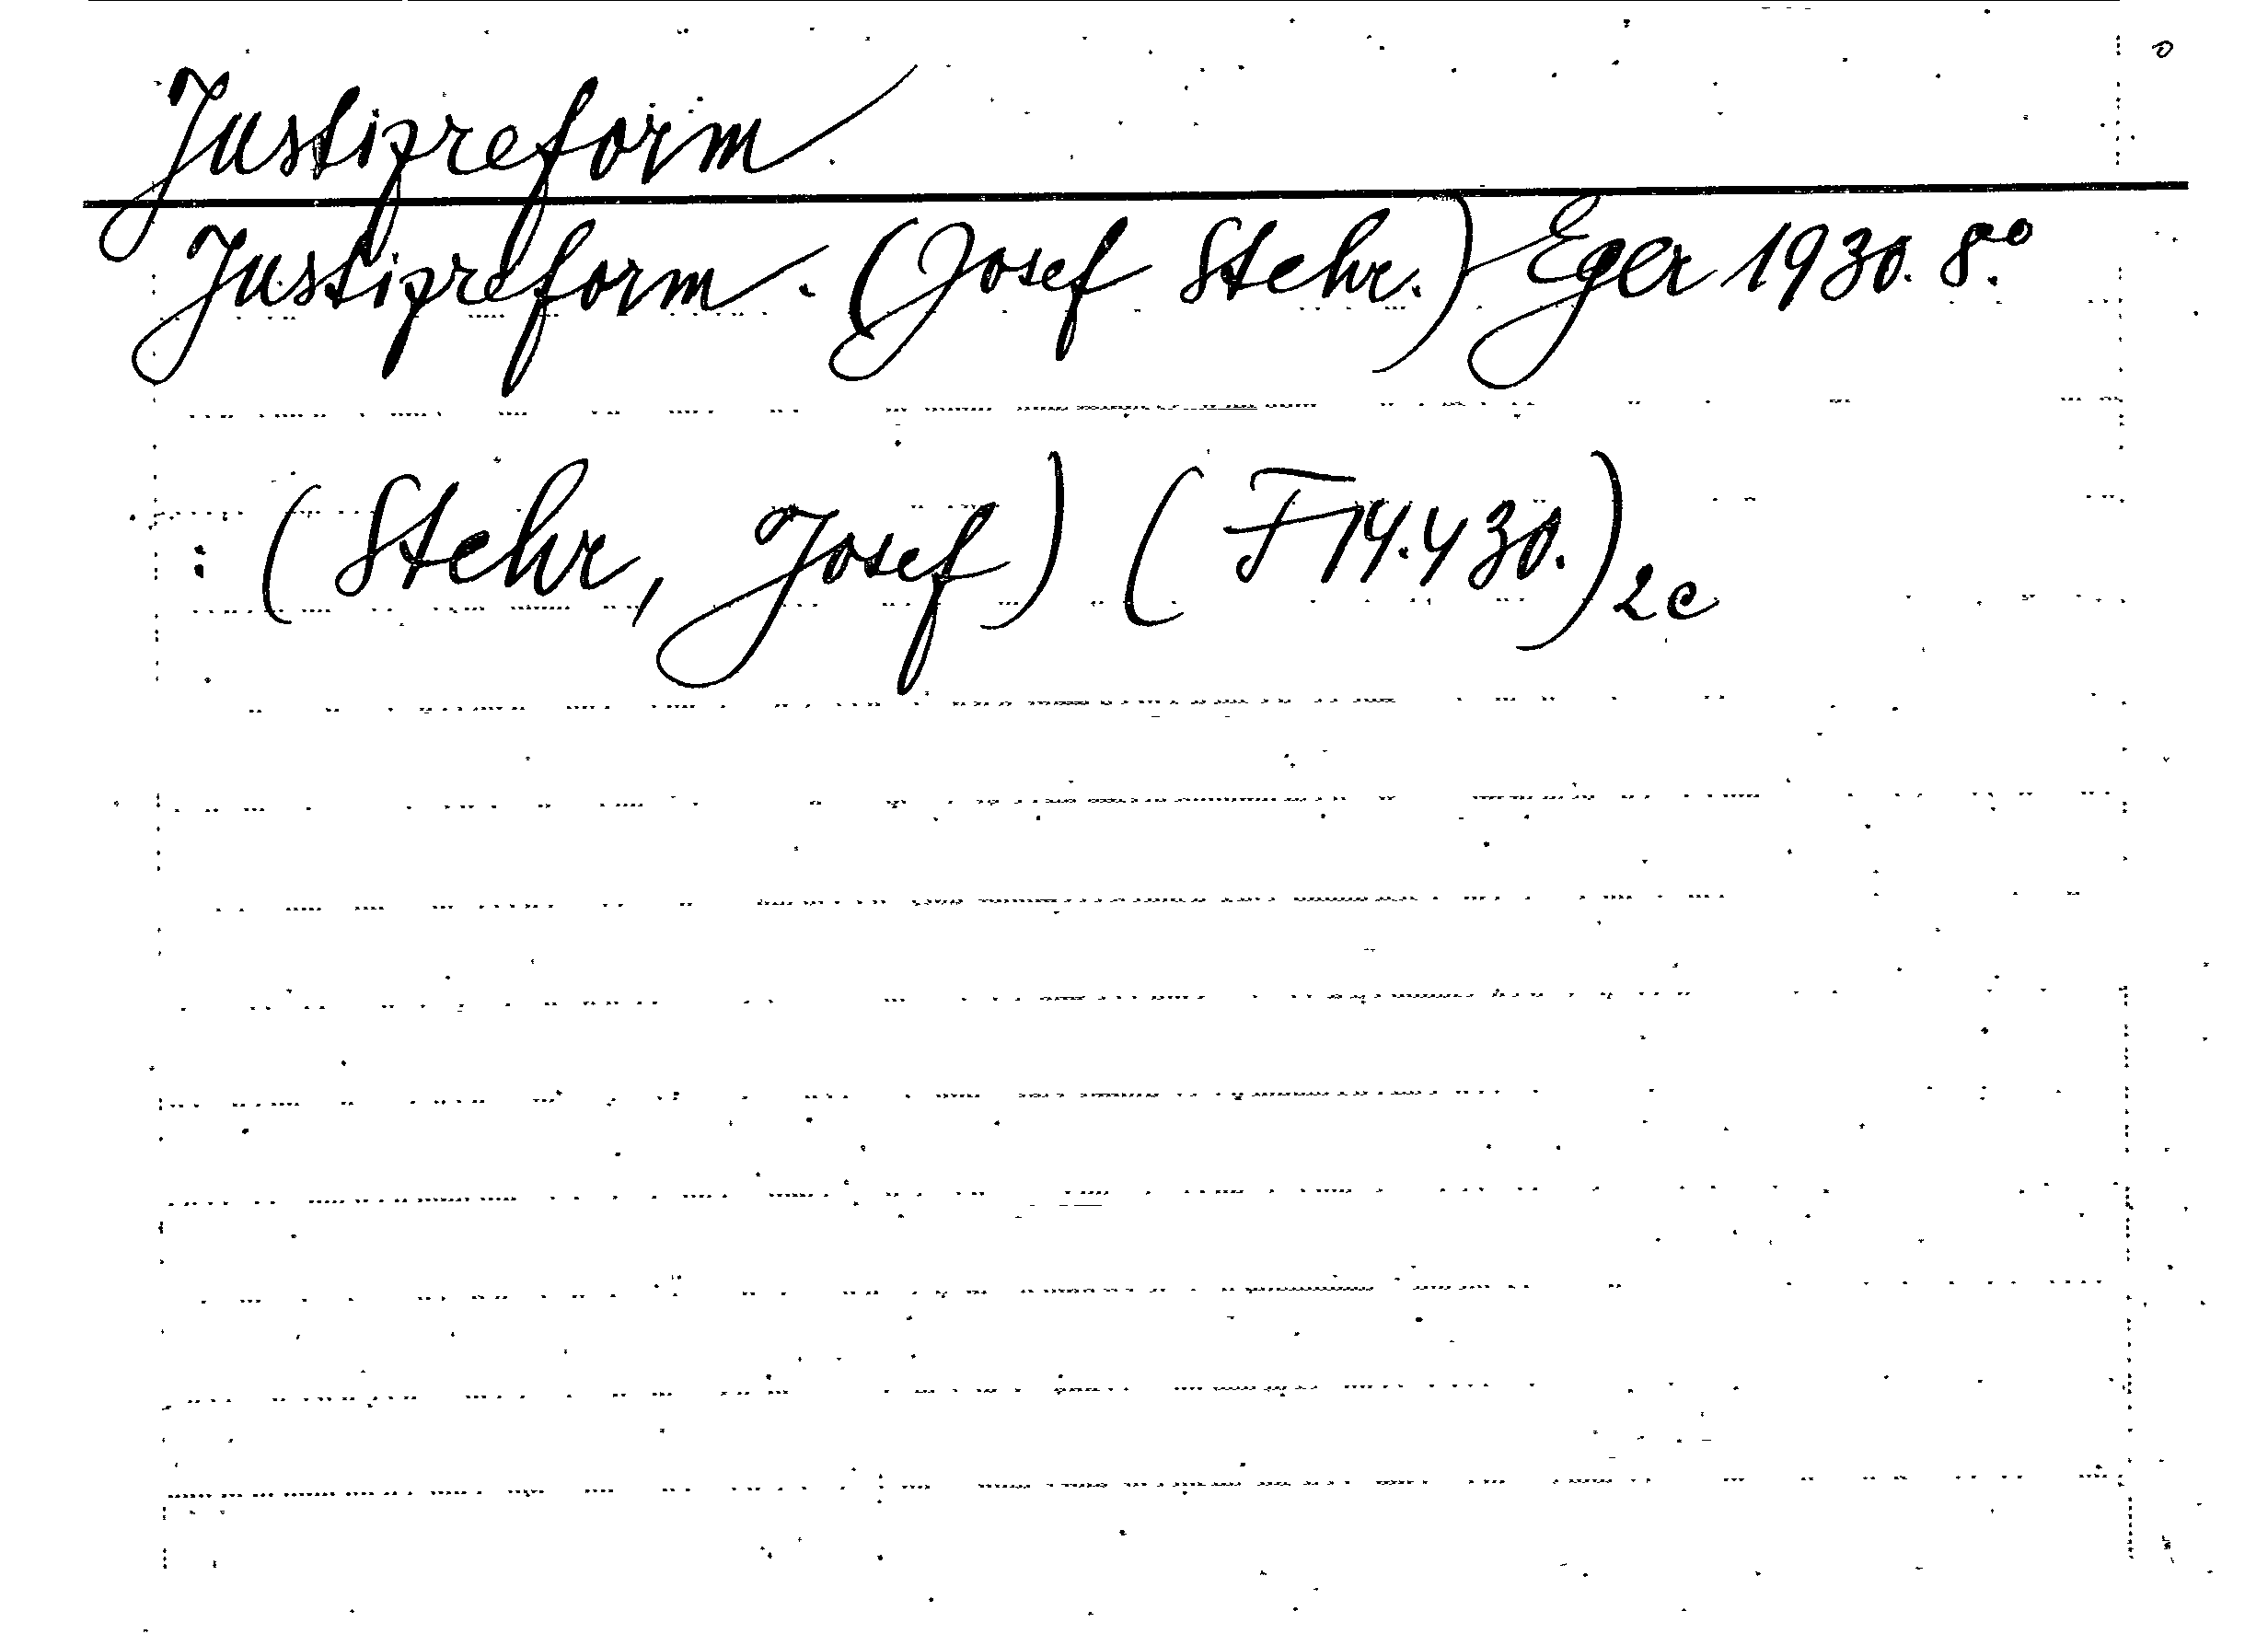 Justizreform
Justizreform. (Josef Stehr.) Eger 1930. 8.°
: (Stehr, Josef) (F 14.430.) 2c